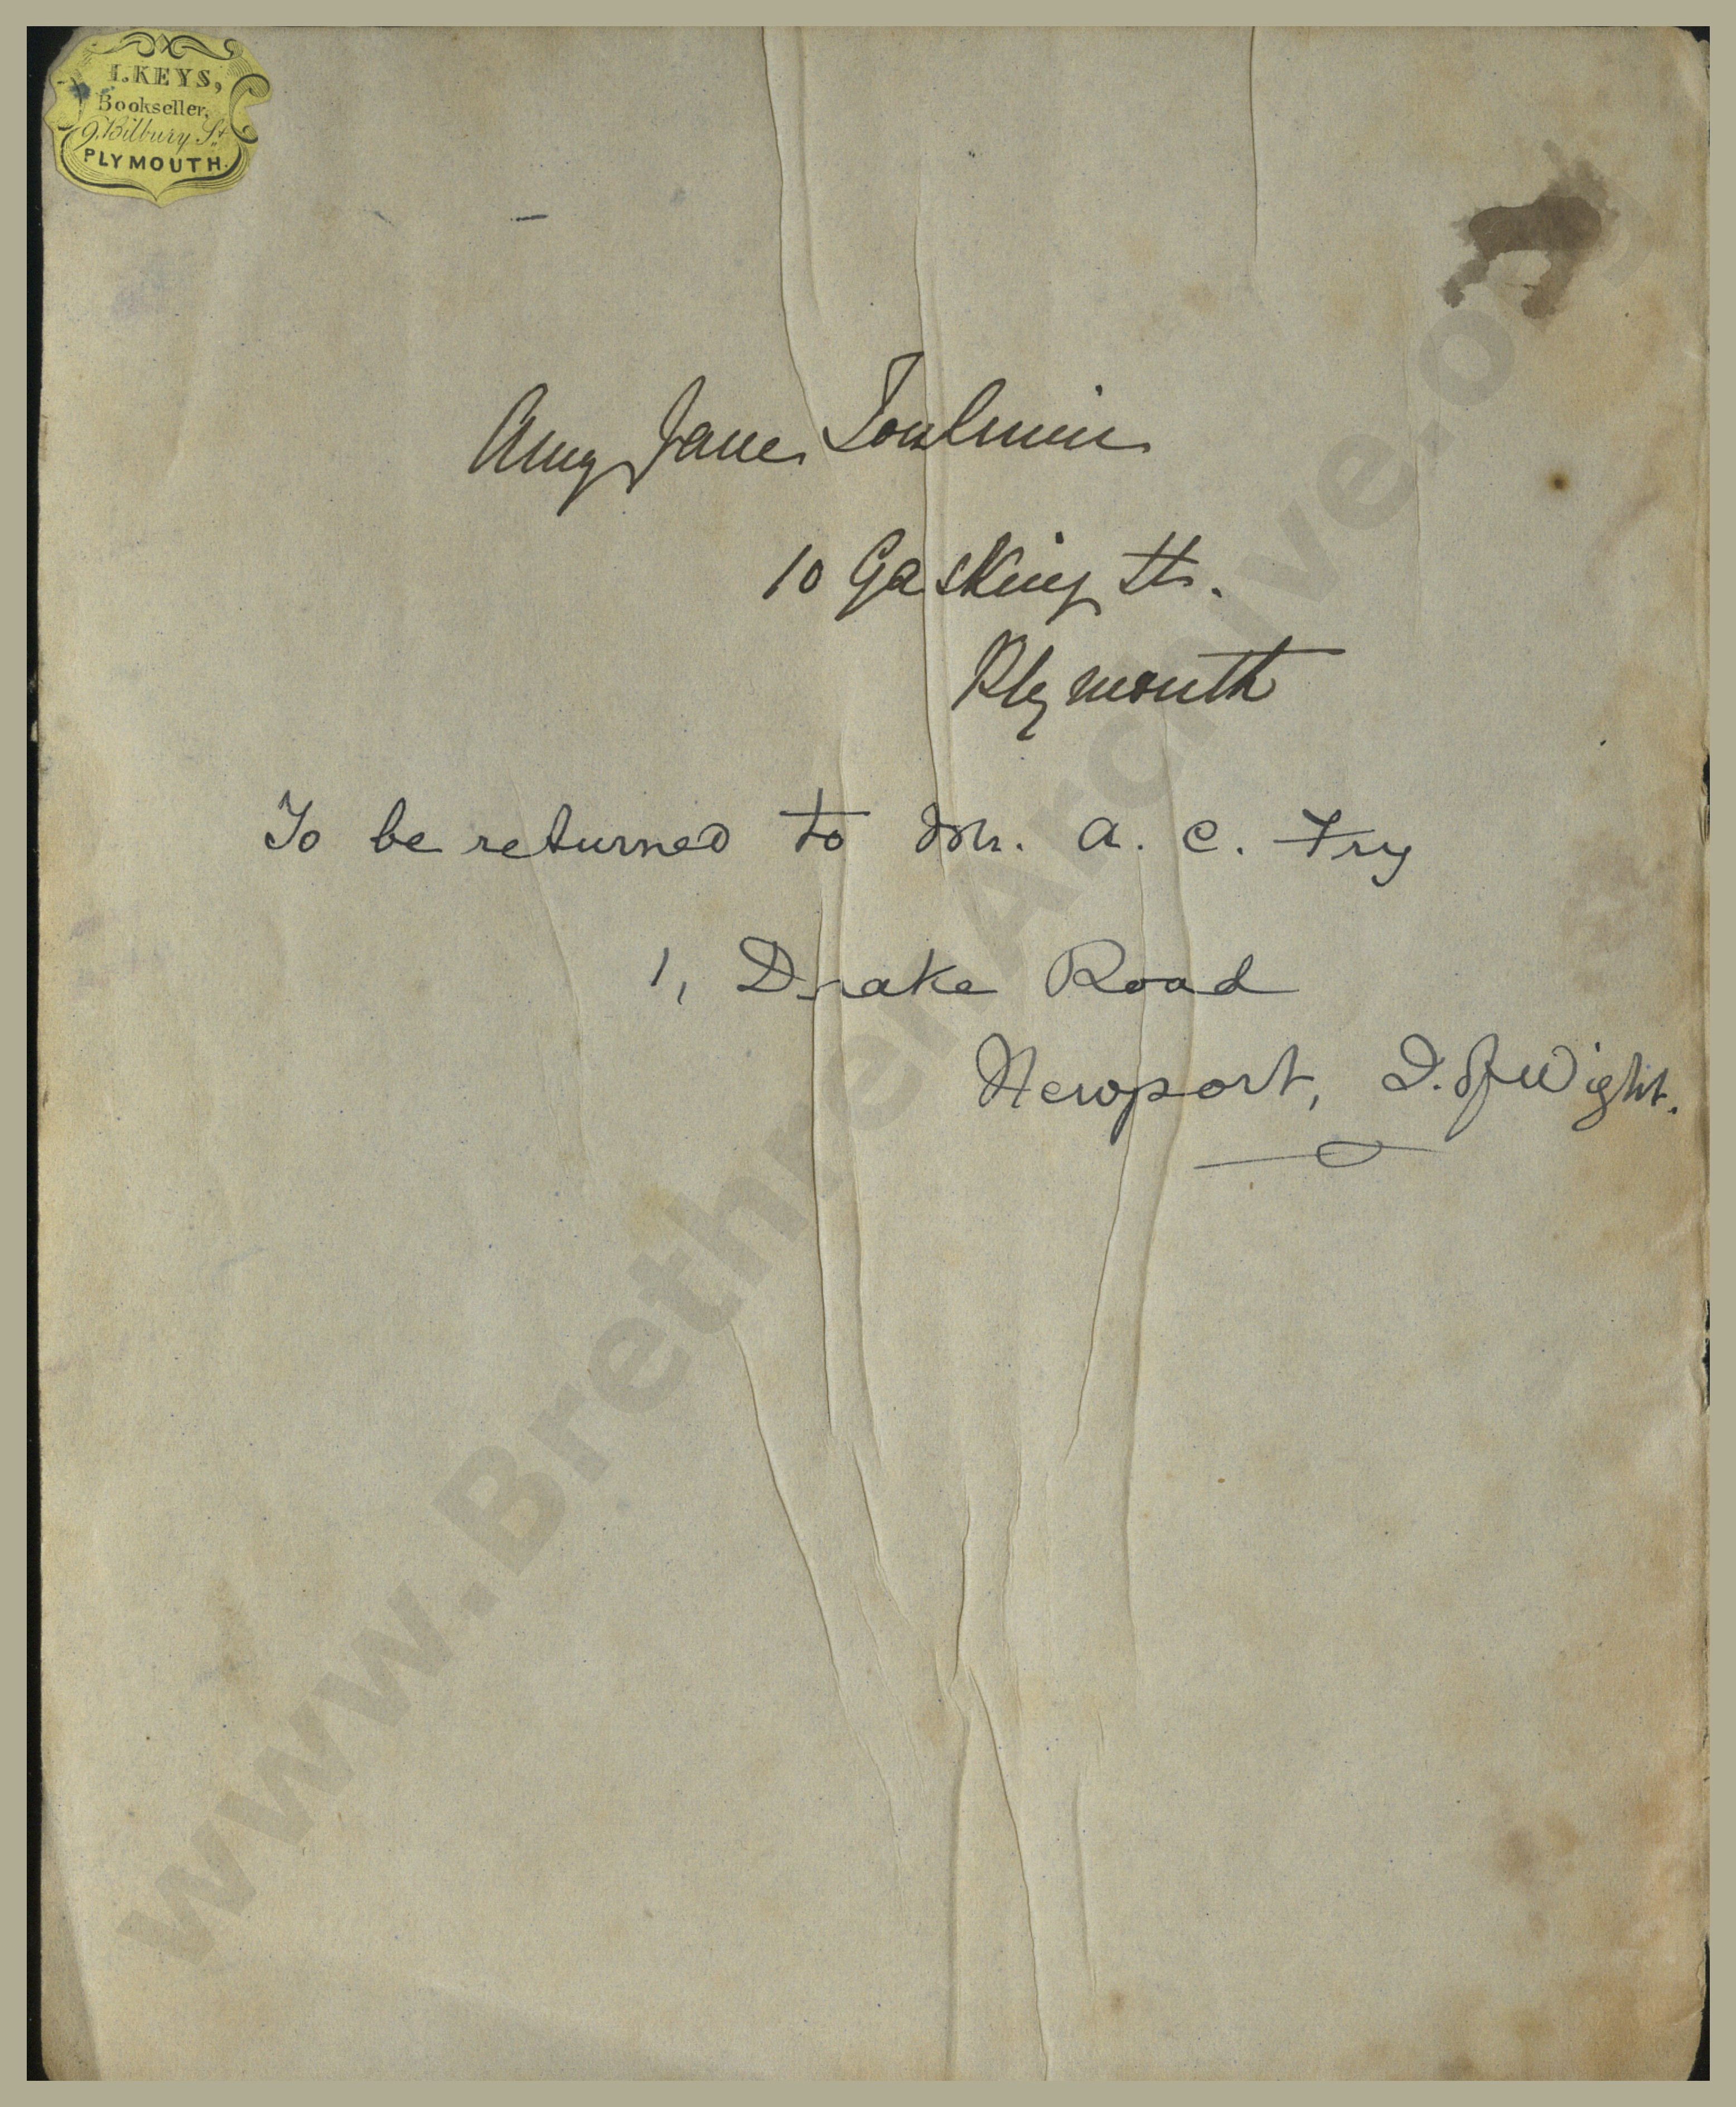 I. KEYS,
Bookseller,
9. Bilbury St.
PLYMOUTH.
Amy Jane Toulmin
10 Gasking St.
Plymouth
To be returned to Mr. A. C. Fry
1, Drake Road
Newport, I. of Wight.
www.BrethrenArchive.org